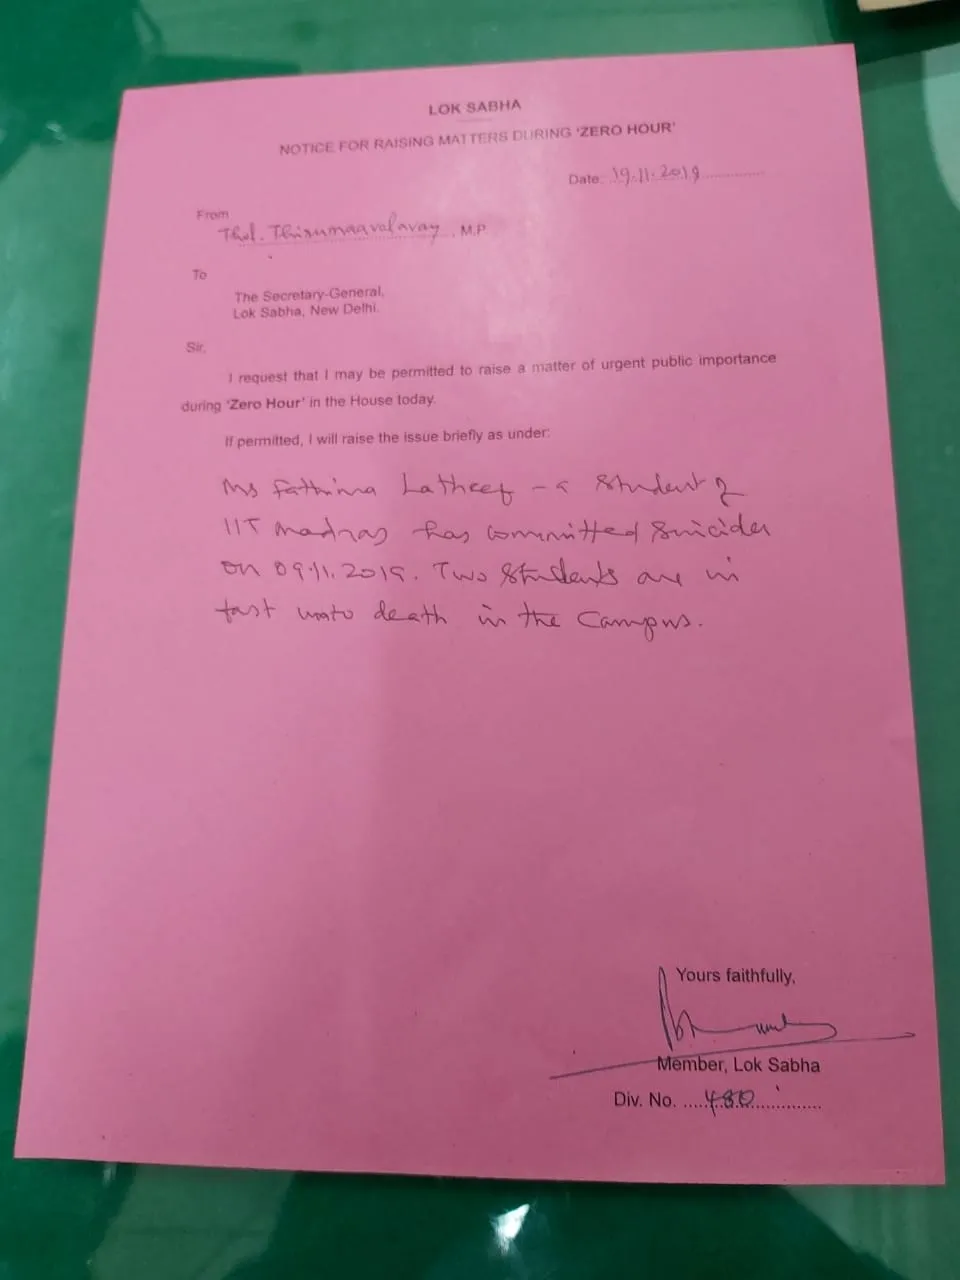 LOK SABHA
NOTICE FOR RAISING MATTERS DURING 'ZERO HOUR'
Date: 19.11.2019
From
Thol. Thirumaavalavan, M.P.
To
The Secretary-General,
Lok Sabha, New Delhi.
Sir,
I request that I may be permitted to raise a matter of urgent public importance
during 'Zero Hour' in the House today.
If permitted, I will raise the issue briefly as under:
Ms Fathima Latheef - a Student of
IIT Madras has committed Suicider
on 09.11.2019. Two Students are in
fast unto death in the Campus.
Yours faithfully,
Member, Lok Sabha
Div. No. ....480....